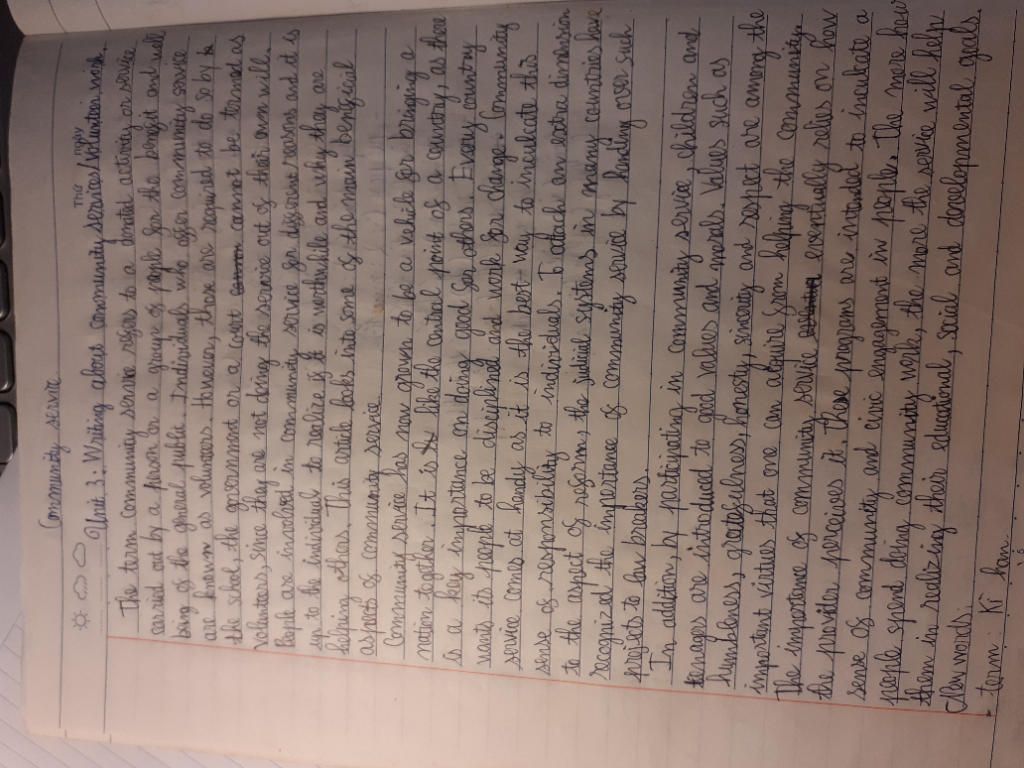 Community service
Thu / copy
Unit 3: Writing about community services/volunteer work.
The term community service refers to a donated activity or service
carried out by a person or a group of people for the benefit and well
being of the general public. Individuals who offer community service
are known as volunteers. However, those are required to do so by to
the school, the government or a court cannot be termed as
volunteers, since they are not doing the service out of their own will.
People are involved in community service for different reasons and it is
up to the individual to realize if it is worthwhile and why they are
helping others. This article looks into some of the main beneficial
aspects of community service.
Community service has now grown to be a vehicle for bringing a
nation together. It is like the central point of a country, as there
is a key importance on doing good for others. Every country
wants its people to be disciplined and work for change. Community
service comes at handy as it is the best way to inculcate this
sense of responsibility to individuals. To attach an extra dimension
to the aspect of reform, the judicial systems in many countries have
recognized the importance of community service by handing over such
projects to law breakers.
In addition, by participating in community service, children and
teenagers are introduced to good values and morals. Values such as
humbleness, gratefulness, honesty, sincerity and respect are among the
important virtues that one can acquire from helping the community.
The importance of community service eventually relies on how
the provider perceives it. These programs are intended to inculcate a
sense of community and civic engagement in people. The more hour
people spend doing community work, the more the service will help
them in realizing their educational, social and developmental goals.
Key words.
term: Kì hạn